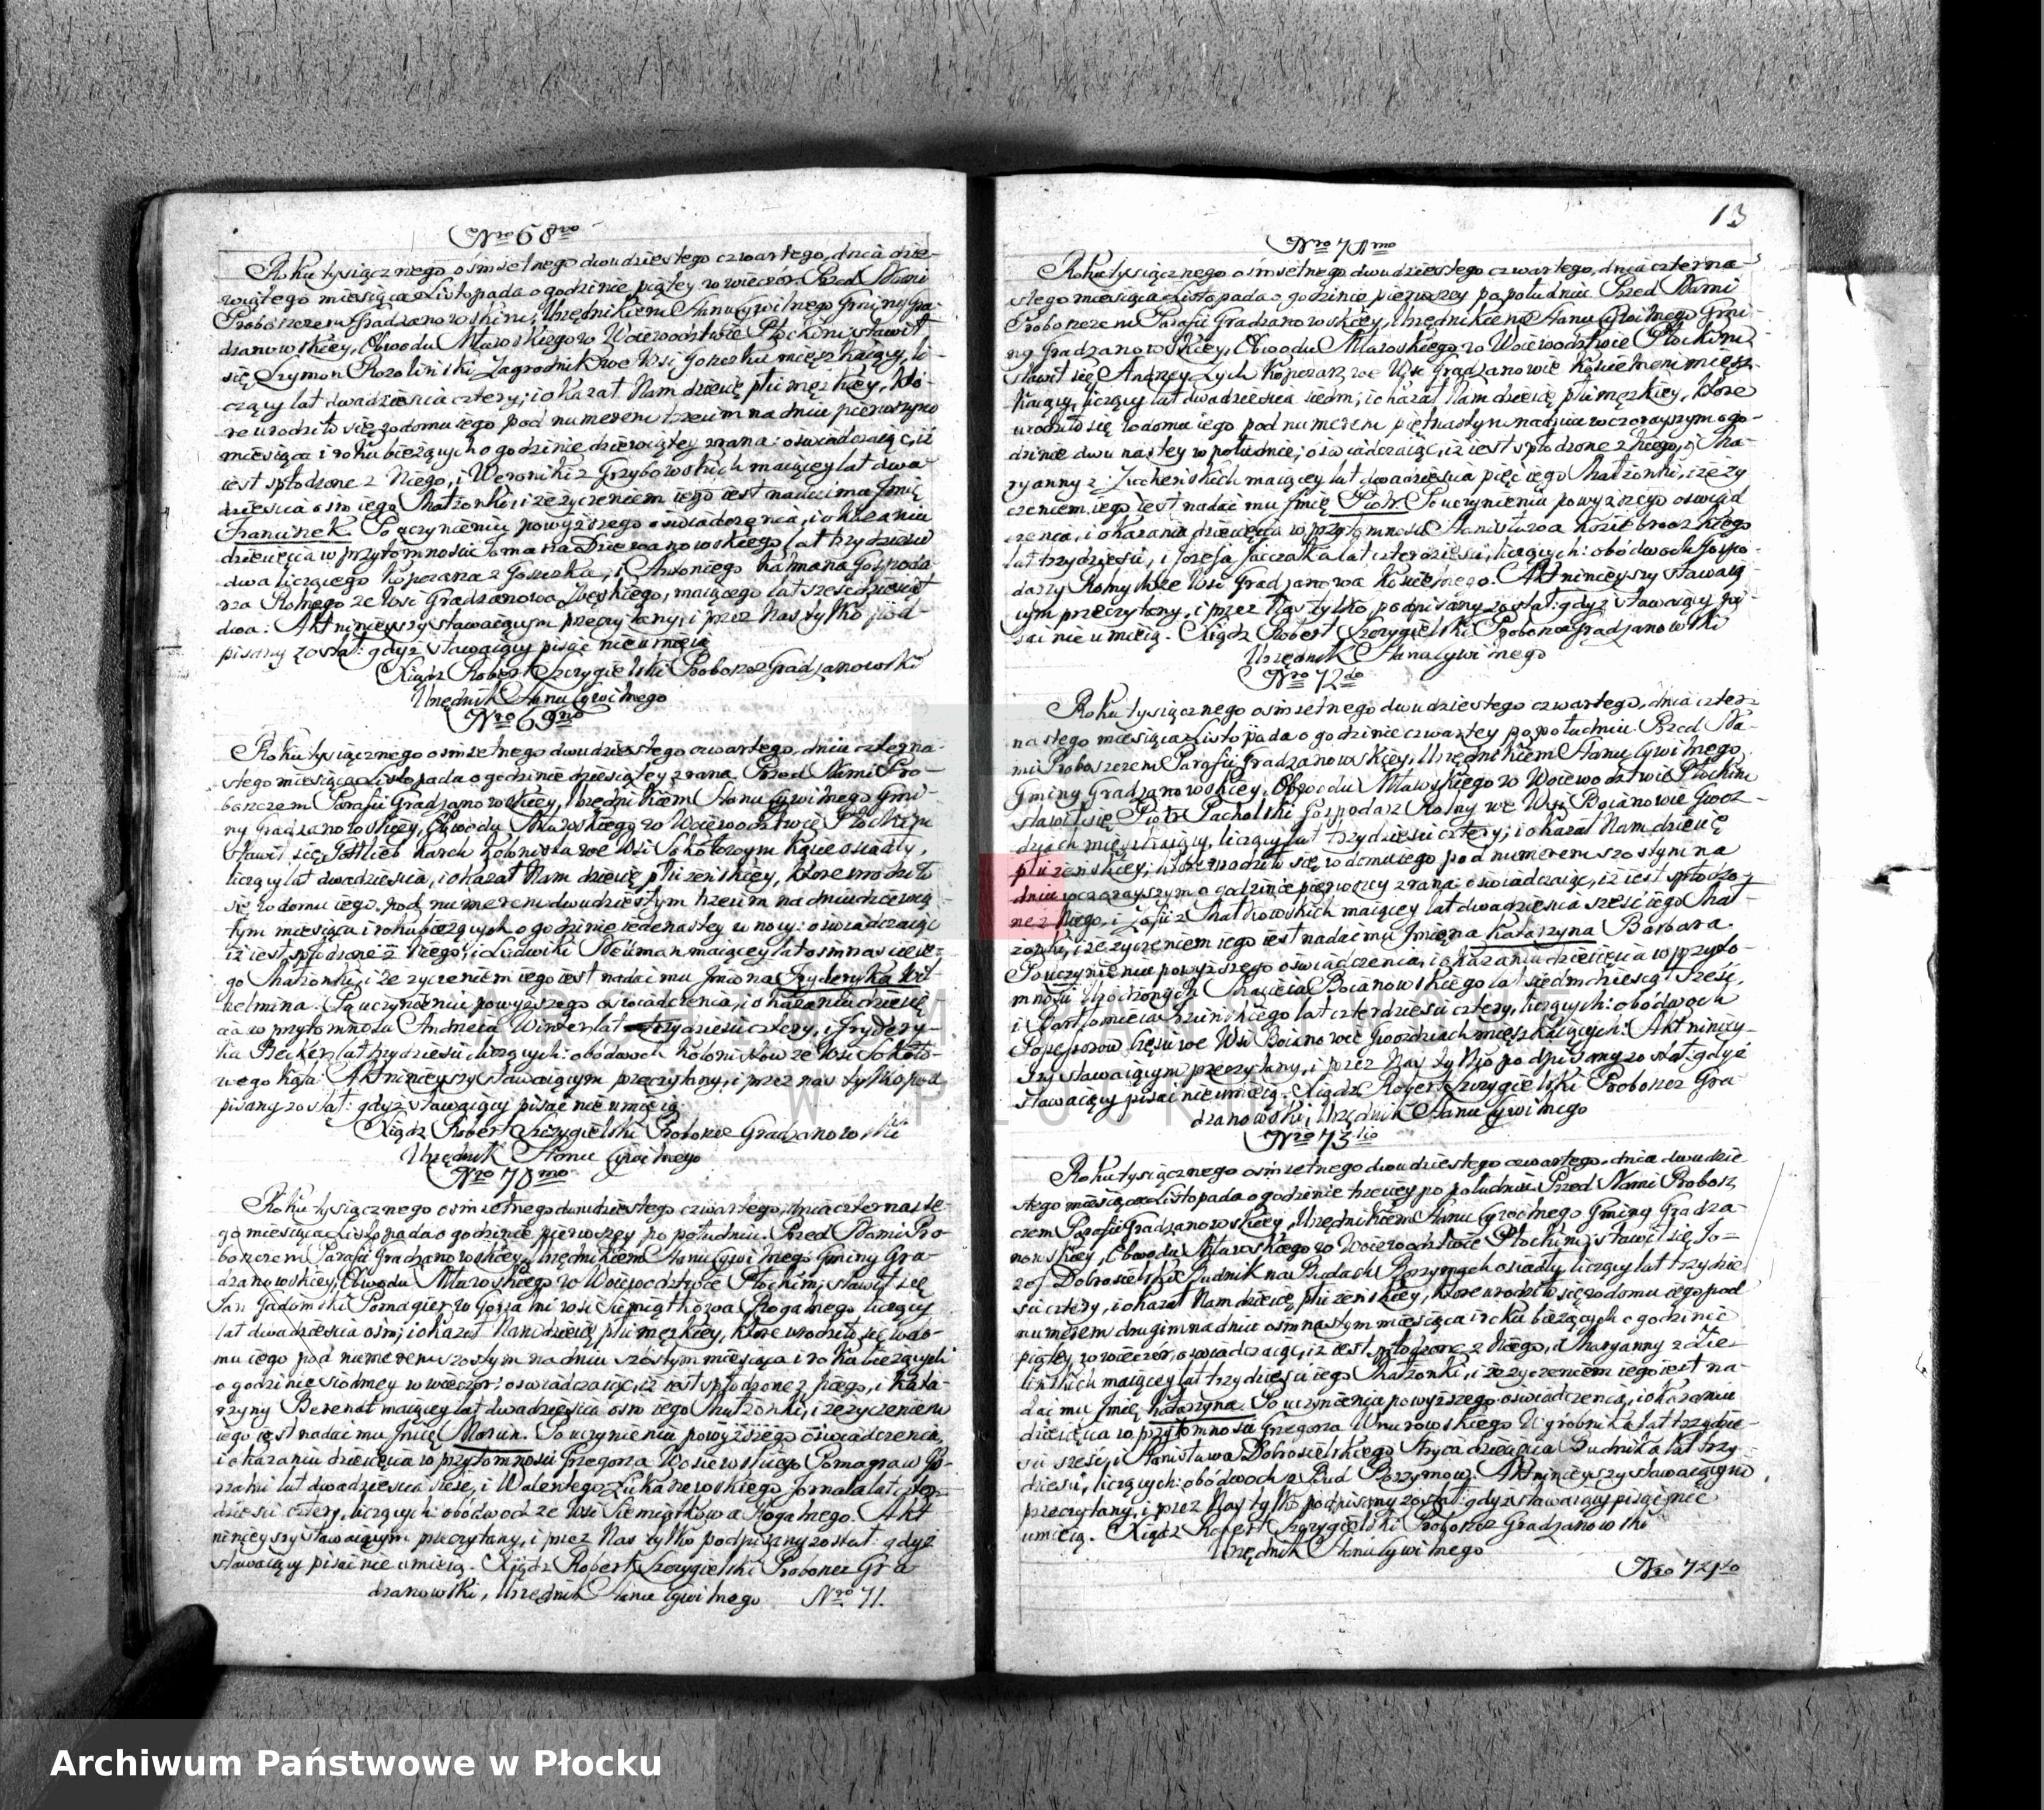 Nro 68vo
Roku tysiącznego ośmsetnego dwudziestego czwartego, dnia dzie-
wiątego miesiąca Listopada o godzinie piątey w wieczor. Przed Nami
Proboszczem Gradzanowskim, Urzędnikiem Stanu Cywilnego Gminy Gra-
dzanowskiey, Obwodu Mławskiego w Woiewodztwie Płockim, stawił
się Szymon Rozoliński Zagrodnik we Wsi mięszkaiący, li-
czący lat dwadzieścia cztery; i okazał Nam dziecię płci męzkiey, któ-
re urodziło się w domu iego pod numerem trzecim na dniu pierwszym
miesiąca i roku bieżących o godzinie dziewiątey zrana: oświadczaiąc, iż
iest spłodzone z Niego, i Weroniki z Grzybowskich maiącey lat dwa-
dzieścia ośm iego Małżonki, i że życzeniem iego iest nadać mu Imię
Franciszek. Po uczynieniu powyższego oświadczenia, i okazaniu
dziecięcia w przytomności Tomasza Dziewanowskiego lat trzydzieści
dwa liczącego i Antoniego Kalmana Gospoda-
rza Rolnego ze Wsi Gradzanowa Zbęskiego, maiącego lat sześćdziesiąt
dwa: Akt ninieyszy stawaiącym przeczytany, i przez Nas tylko pod-
pisany został: gdyż stawaiący pisać nie umieią
Xiądz Robert Szczygielski Proboszcz Gradzanowski
Urzędnik Stanu Cywilnego
Nro 69no
Roku tysiącznego ośmsetnego dwudziestego czwartego, dnia czterna-
stego miesiąca Listopada o godzinie dziesiątey zrana. Przed Nami Pro-
boszczem Parafii Gradzanowskiey, Urzędnikiem Stanu Cywilnego Gmi-
ny Gradzanowskiey, Obwodu Mławskiego w Woiewodztwie Płockim
stawił się Gottlieb Karch Kolonista we Wsi Sokołowym Kącie osiadły,
liczący lat dwadzieścia, i okazał Nam dziecię płci żeńskiey, które urodziło
się w domu iego pod numerem dwudziestym trzecim na dniu dziewią-
tym miesiąca i roku bieżących o godzinie iedenastey w nocy: oświadczaiąc
iż iest spłodzone z Niego, i Ludwiki Neuman maiącey lat ośmnaście ie-
go Małżonki, i że życzeniem iego iest nadać mu Imiona Fryderyka Wil-
helmina. Po uczynieniu powyższego oświadczenia, i okazaniu dziecię-
cia w przytomności Andrzeia Winter lat trzydzieści cztery, i Frydery-
ka Becker lat trzydzieści liczących: obódwoch Kolonistów ze Wsi Sokoło-
wego Kąta: Akt ninieyszy stawaiącym przeczytany, i przez nas tylko pod-
pisany został: gdyż stawaiący pisać nie umieią
Xiądz Robert Szczygielski Proboszcz Gradzanowski
Urzędnik Stanu Cywilnego
Nro 70mo
Roku tysiącznego ośmsetnego dwudziestego czwartego, dnia czternaste-
go miesiąca Listopada o godzinie pierwszey po południu. Przed Nami Pro-
boszczem Parafii Gradzanowskiey, Urzędnikiem Stanu Cywilnego Gminy Gra-
dzanowskiey, Obwodu Mławskiego w Woiewodztwie Płockim, stawił się
Jan Gadomski Pomagier w Gorzalni wsi Siemiątkowa Rogalnego liczący
lat dwadzieścia ośm; i okazał Nam dziecię płci męzkiey, które urodziło się w do-
mu iego pod numerem szóstym na dniu szóstym miesiąca i roku bieżących
o godzinie siódmey w wieczor: oświadczaiąc, iż iest spłodzone z Niego, i Kata-
rzyny Berenat maiącey lat dwadzieścia ośm iego Małżonki, i że życzeniem
iego iest nadać mu Imię Marcin. Po uczynieniu powyższego oświadczenia,
i okazaniu dziecięcia w przytomności Grzegorza Wosiewskiego Pomagra w Go-
rzalni lat dwadzieścia sześć, i Walentego Łukaszewskiego Fornala lat czter-
dzieści cztery, liczących: obódwoch ze Wsi Siemiątkowa Rogalnego. Akt
ninieyszy stawaiącym przeczytany, i przez Nas tylko podpisany został: gdyż
stawaiący pisać nie umieią. Xiądz Robert Szczygielski Proboszcz Gra-
dzanowski, Urzędnik Stanu Cywilnego Nro 71.
13
Nro 71mo
Roku tysiącznego ośmsetnego dwudziestego czwartego, dnia czterna-
stego miesiąca Listopada o godzinie pierwszey po południu Przed Nami
Proboszczem Parafii Gradzanowskiey, Urzędnikiem Stanu Cywilnego Gmi-
ny Gradzanowskiey, Obwodu Mławskiego w Woiewodztwie Płockim,
stawił się Andrzey Zych we Wsi Gradzanowie Kościelnem miesz-
kaiący, liczący lat dwadzieścia siedm; i okazał Nam dziecię płci męzkiey, które
urodziło się w domu iego pod numerem piętnastym na dniu wczorayszym o go-
dzinie dwunastey w południe; oświadczaiąc, iż iest spłodzone z Niego, i Ma-
ryanny z maiącey lat dwadzieścia pięć iego Małżonki, i że ży-
czeniem iego iest nadać mu Imię Piotr. Po uczynieniu powyższego oświad-
czenia, i okazaniu dziecięcia w przytomności Stanisława Koziebrodzkiego
lat trzydzieści, i Józefa Jaczaka lat czterdzieści, liczących: obódwoch Gospo-
darzy Rolnych ze Wsi Gradzanowa Kościelnego. Akt ninieyszy stawaią-
cym przeczytany, i przez Nas tylko podpisany został: gdyż stawaiący pi-
sać nie umieią. Xiądz Robert Szczygielski Proboszcz Gradzanowski
Urzędnik Stanu Cywilnego
Nro 72do
Roku tysiącznego ośmsetnego dwudziestego czwartego, dnia czter-
nastego miesiąca Listopada o godzinie czwartey po południu. Przed Na-
mi Proboszczem Parafii Gradzanowskiey, Urzędnikiem Stanu Cywilnego
Gminy Gradzanowskiey, Obwodu Mławskiego w Woiewodztwie Płockim
stawił się Piotr Pacholski Gospodarz Rolny we Wsi Boianowie Gwoz-
dziach mięszkaiący, liczący lat trzydzieści cztery; i okazał Nam dziecię
płci żeńskiey, które urodziło się w domu iego pod numerem szóstym na
dniu wczorayszym o godzinie pierwszey zrana: oświadczaiąc, iż iest spłodzo-
ne z Niego, i Zofii z Małkowskich maiącey lat dwadzieścia sześć iego Mał-
żonki, i że życzeniem iego iest nadać mu Imiona Katarzyna Barbara.
Po uczynieniu powyższego oświadczenia, i okazaniu dziecięcia w przyto-
mności Urodzonych Macieia Boianowskiego lat siedmdziesiąt sześć,
i Bartłomieia lat czterdzieści cztery, liczących: obódwoch
Possessorów części we Wsi Boianowie Gwozdziach mięszkaiących: Akt niniey-
szy stawaiącym przeczytany, i przez Nas tylko podpisany został: gdyż
stawaiący pisać nie umieią. Xiądz Robert Szczygielski Proboszcz Gra-
dzanowski, Urzędnik Stanu Cywilnego
Nro 73tio
Roku tysiącznego ośmsetnego dwudziestego czwartego, dnia dwudzie-
stego miesiąca Listopada o godzinie trzeciey po południu. Przed Nami Probosz-
czem Parafii Gradzanowskiey, Urzędnikiem Stanu Cywilnego Gminy Gradza-
nowskiey, Obwodu Mławskiego w Woiewodztwie Płockim, stawił się Jó-
zef Dobrosielski Budnik na Budach Borzymach osiadły, liczący lat trzydzie-
ści cztery, i okazał Nam dziecię płci żeńskiey, które urodziło się w domu iego pod
numerem drugim na dniu ośmnastym miesiąca i roku bieżących o godzinie
piątey w wieczór, oświadczaiąc, iż iest spłodzone z Niego, i Maryanny z Zie-
lińskich maiącey lat trzydzieści iego Małżonki, i że życzeniem iego iest na-
dać mu Imię Katarzyna. Po uczynieniu powyższego oświadczenia, i okazaniu
dziecięcia w przytomności Grzegorza Wyrobnika lat trzydzie-
ści sześć, i Stanisława Dobrosielskiego Stryia dziecięcia Budnika lat trzy-
dzieści, liczących: obódwoch z Bud Borzymow: Akt ninieyszy stawaiącym
przeczytany, i przez Nas tylko podpisany został: gdyż stawaiący pisać nie
umieią. Xiądz Robert Szczygielski Proboszcz Gradzanowski
Urzędnik Stanu Cywilnego
Nro 74to
ARCHIWUM PAŃSTWOWE
W PŁOCKU
Archiwum Państwowe w Płocku